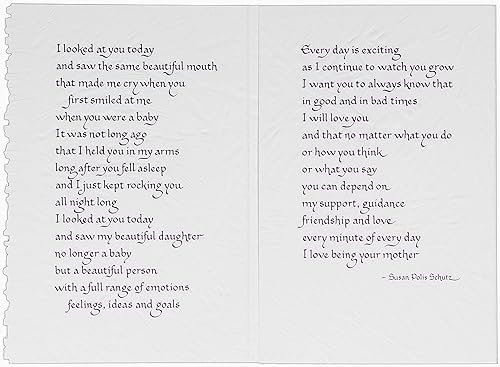 I looked at you today
and saw the same beautiful mouth
that made me cry when you
first smiled at me
when you were a baby
It was not long ago
that I held you in my arms
long after you fell asleep
and I just kept rocking you
all night long
I looked at you today
and saw my beautiful daughter
no longer a baby
but a beautiful person
with a full range of emotions
feelings, ideas and goals
Every day is exciting
as I continue to watch you grow
I want you to always know that
in good and in bad times
I will love you
and that no matter what you do
or how you think
or what you say
you can depend on
my support, guidance
friendship and love
every minute of every day
I love being your mother
– Susan Polis Schutz